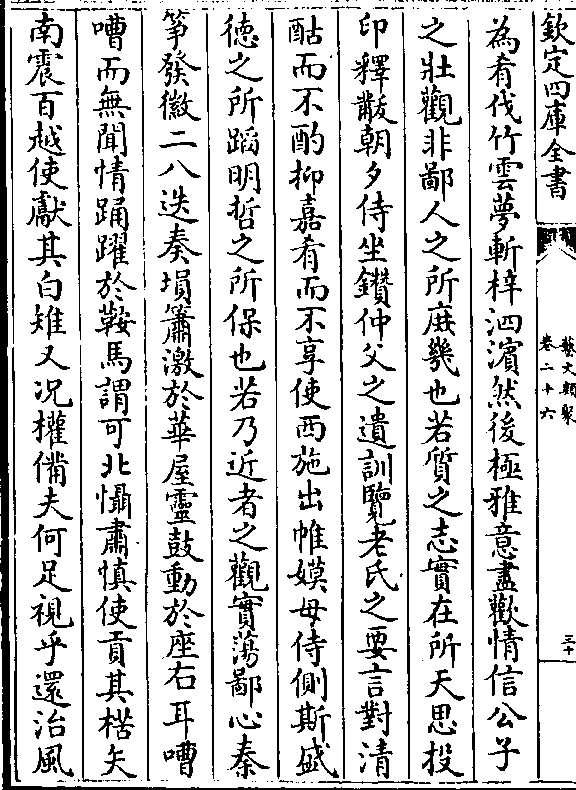 欽定四庫全書
藝文類聚
卷二十六
三十
為肴伐竹雲夢斬梓泗濱然後極雅意盡歡情信公子
之壯觀非鄙人之所庶幾也若質之志實在所天思投
印釋黻朝夕侍坐鑽仲父之遺訓覽老氏之要言對清
酤而不酌抑嘉肴而不享使西施出帷嫫母侍側斯盛
德之所蹈明哲之所保也若乃近者之觀實蕩鄙心秦
箏發徽二八迭奏塤簫激於華屋靈鼓動於座右耳嘈
嘈而無聞情踊躍於鞍馬謂可北懾肅慎使貢其楛矢
南震百越使獻其白雉又况權備夫何足視乎還治風